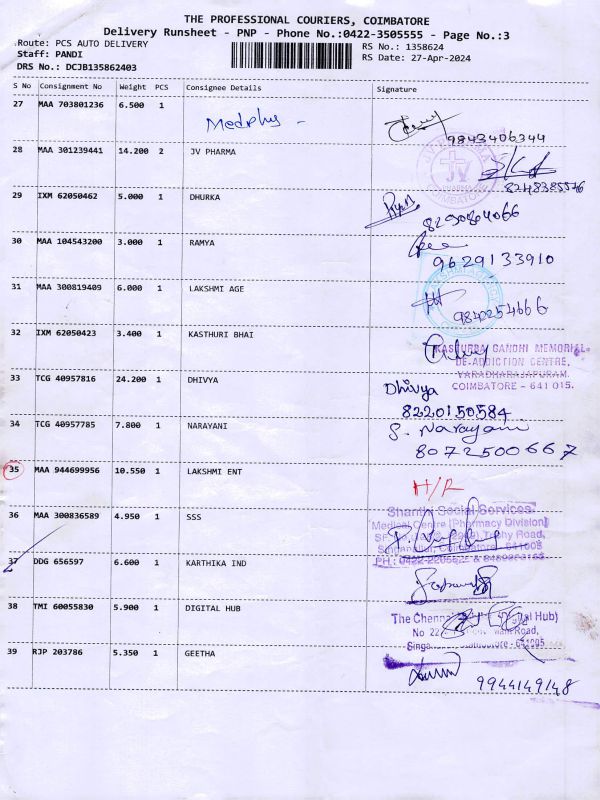 THE PROFESSIONAL COURIERS, COIMBATORE
Delivery Runsheet - PNP - Phone No.:0422-3505555 - Page No.:3
Route: PCS AUTO DELIVERY
RS No.: 1358624
Staff: PANDI
RS Date: 27-Apr-2024
DRS No.: DCJB135862403
S No Consignment No Weight PCS Consignee Details Signature
27 MAA 703801236 6.500 1 Medplus -
9843406344
28 MAA 301239441 14.200 2 JV PHARMA
JV
COIMBATORE
8248385576
29 IXM 62050462 5.000 1 DHURKA
8290864066
30 MAA 104543200 3.000 1 RAMYA
9629133910
31 MAA 300819409 6.000 1 LAKSHMI AGE
9840254666
32 IXM 62050423 3.400 1 KASTHURI BHAI
KASTURBA GANDHI MEMORIAL
DE-ADDICTION CENTRE,
VARADHARAJAPURAM,
COIMBATORE - 641 015.
33 TCG 40957816 24.200 1 DHIVYA Dhivya
8220150584
34 TCG 40957785 7.800 1 NARAYANI S. Narayani
8072500667
35 MAA 944699956 10.550 1 LAKSHMI ENT H/R
36 MAA 300836589 4.950 1 SSS
Shanthi Social Services
Medical Centre (Pharmacy Division)
Trichy Road,
Singanallur, Coimbatore - 641005
37 DDG 656597 6.600 1 KARTHIKA IND
38 TMI 60055830 5.900 1 DIGITAL HUB
The Chennai Hub)
No 22 Road,
39 RJP 203786 5.350 1 GEETHA
9944149148